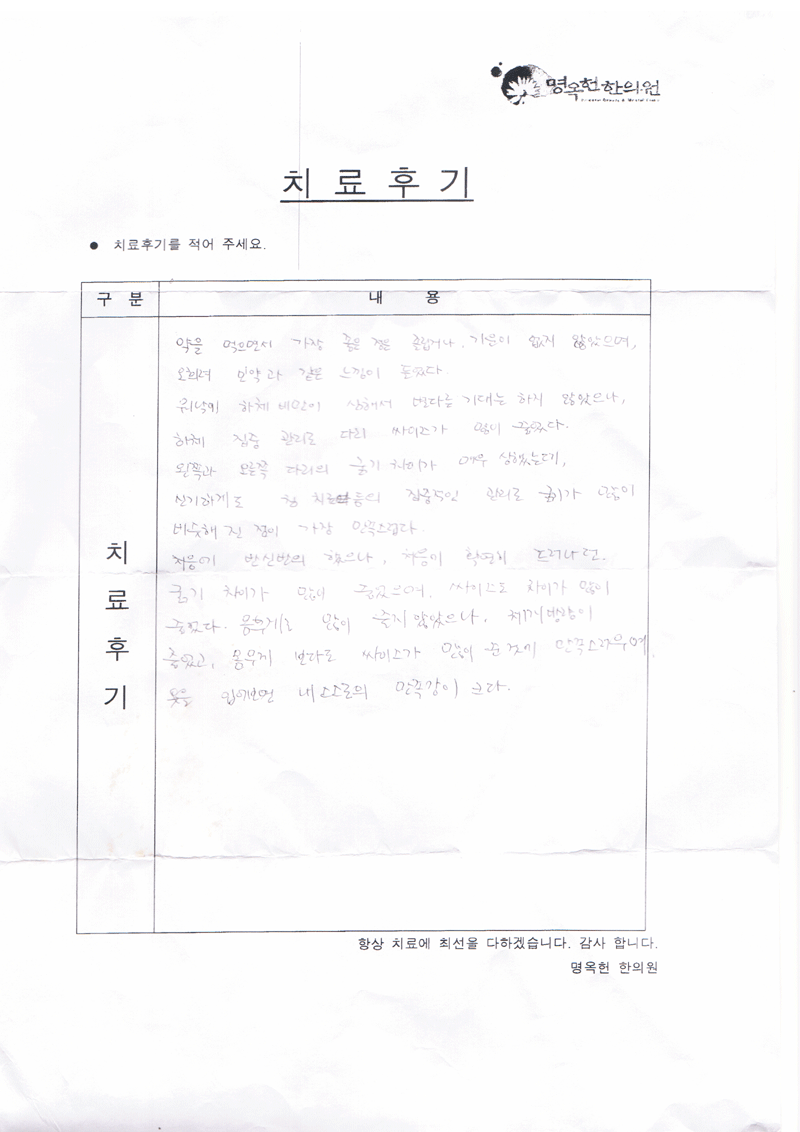 명옥헌한의원
치 료 후 기
● 치료후기를 적어 주세요.
구 분 내 용
치료후기
약을 먹으면서 가장 좋은 점은 졸립거나, 기운이 없지 않았으며,
오히려 보약과 같은 느낌이 들었다.
워낙에 하체비만이 심해서 별다른 기대는 하지 않았으나,
하체 집중 관리로 다리 싸이즈가 많이 줄었다.
왼쪽과 오른쪽 다리의 굵기 차이가 매우 심했는데,
신기하게도 침 치료 등의 집중적인 관리로 굵기가 많이
비슷해 진 점이 가장 만족스럽다.
처음에 반신반의 했으나, 처음이 확연히 드러나던.
굵기 차이가 많이 줄었으며, 싸이즈도 차이가 많이
줄었다. 몸무게는 많이 줄지 않았으나, 체지방량이
줄었고, 몸무게 보다도 싸이즈가 많이 준 것이 만족스러우며,
옷을 입어보면 내 스스로의 만족감이 크다.
항상 치료에 최선을 다하겠습니다. 감사 합니다.
명옥헌 한의원